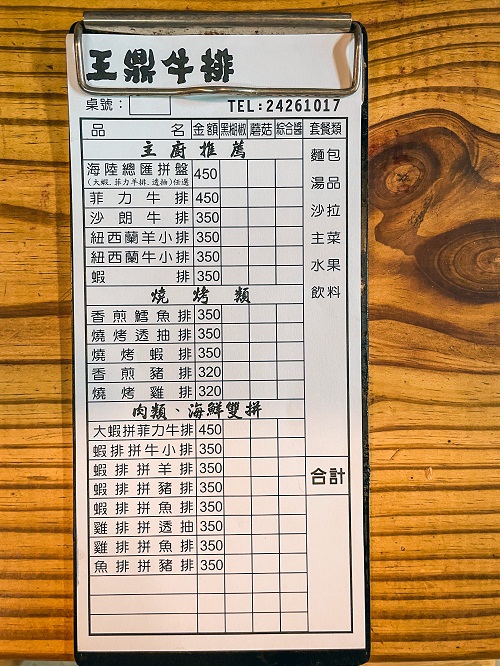 王鼎牛排
桌號： TEL:24261017
品 名 金額 黑椒 蘑菇 綜合醬 套餐類
主廚推薦
海陸總匯拼盤 450
(大蝦.菲力羊排.透抽)任選
菲力牛排 450
沙朗牛排 350
紐西蘭羊小排 350
紐西蘭牛小排 350
蝦排 350
燒烤類
香煎鱈魚排 350
燒烤透抽排 350
燒烤蝦排 350
香煎豬排 320
燒烤雞排 320
肉類、海鮮雙拼
大蝦拼菲力牛排 450
蝦排拼牛小排 350
蝦排拼羊排 350
蝦排拼豬排 350
蝦排拼魚排 350
雞排拼透抽 350
雞排拼魚排 350
魚排拼豬排 350
麵包
湯品
沙拉
主菜
水果
飲料
合計